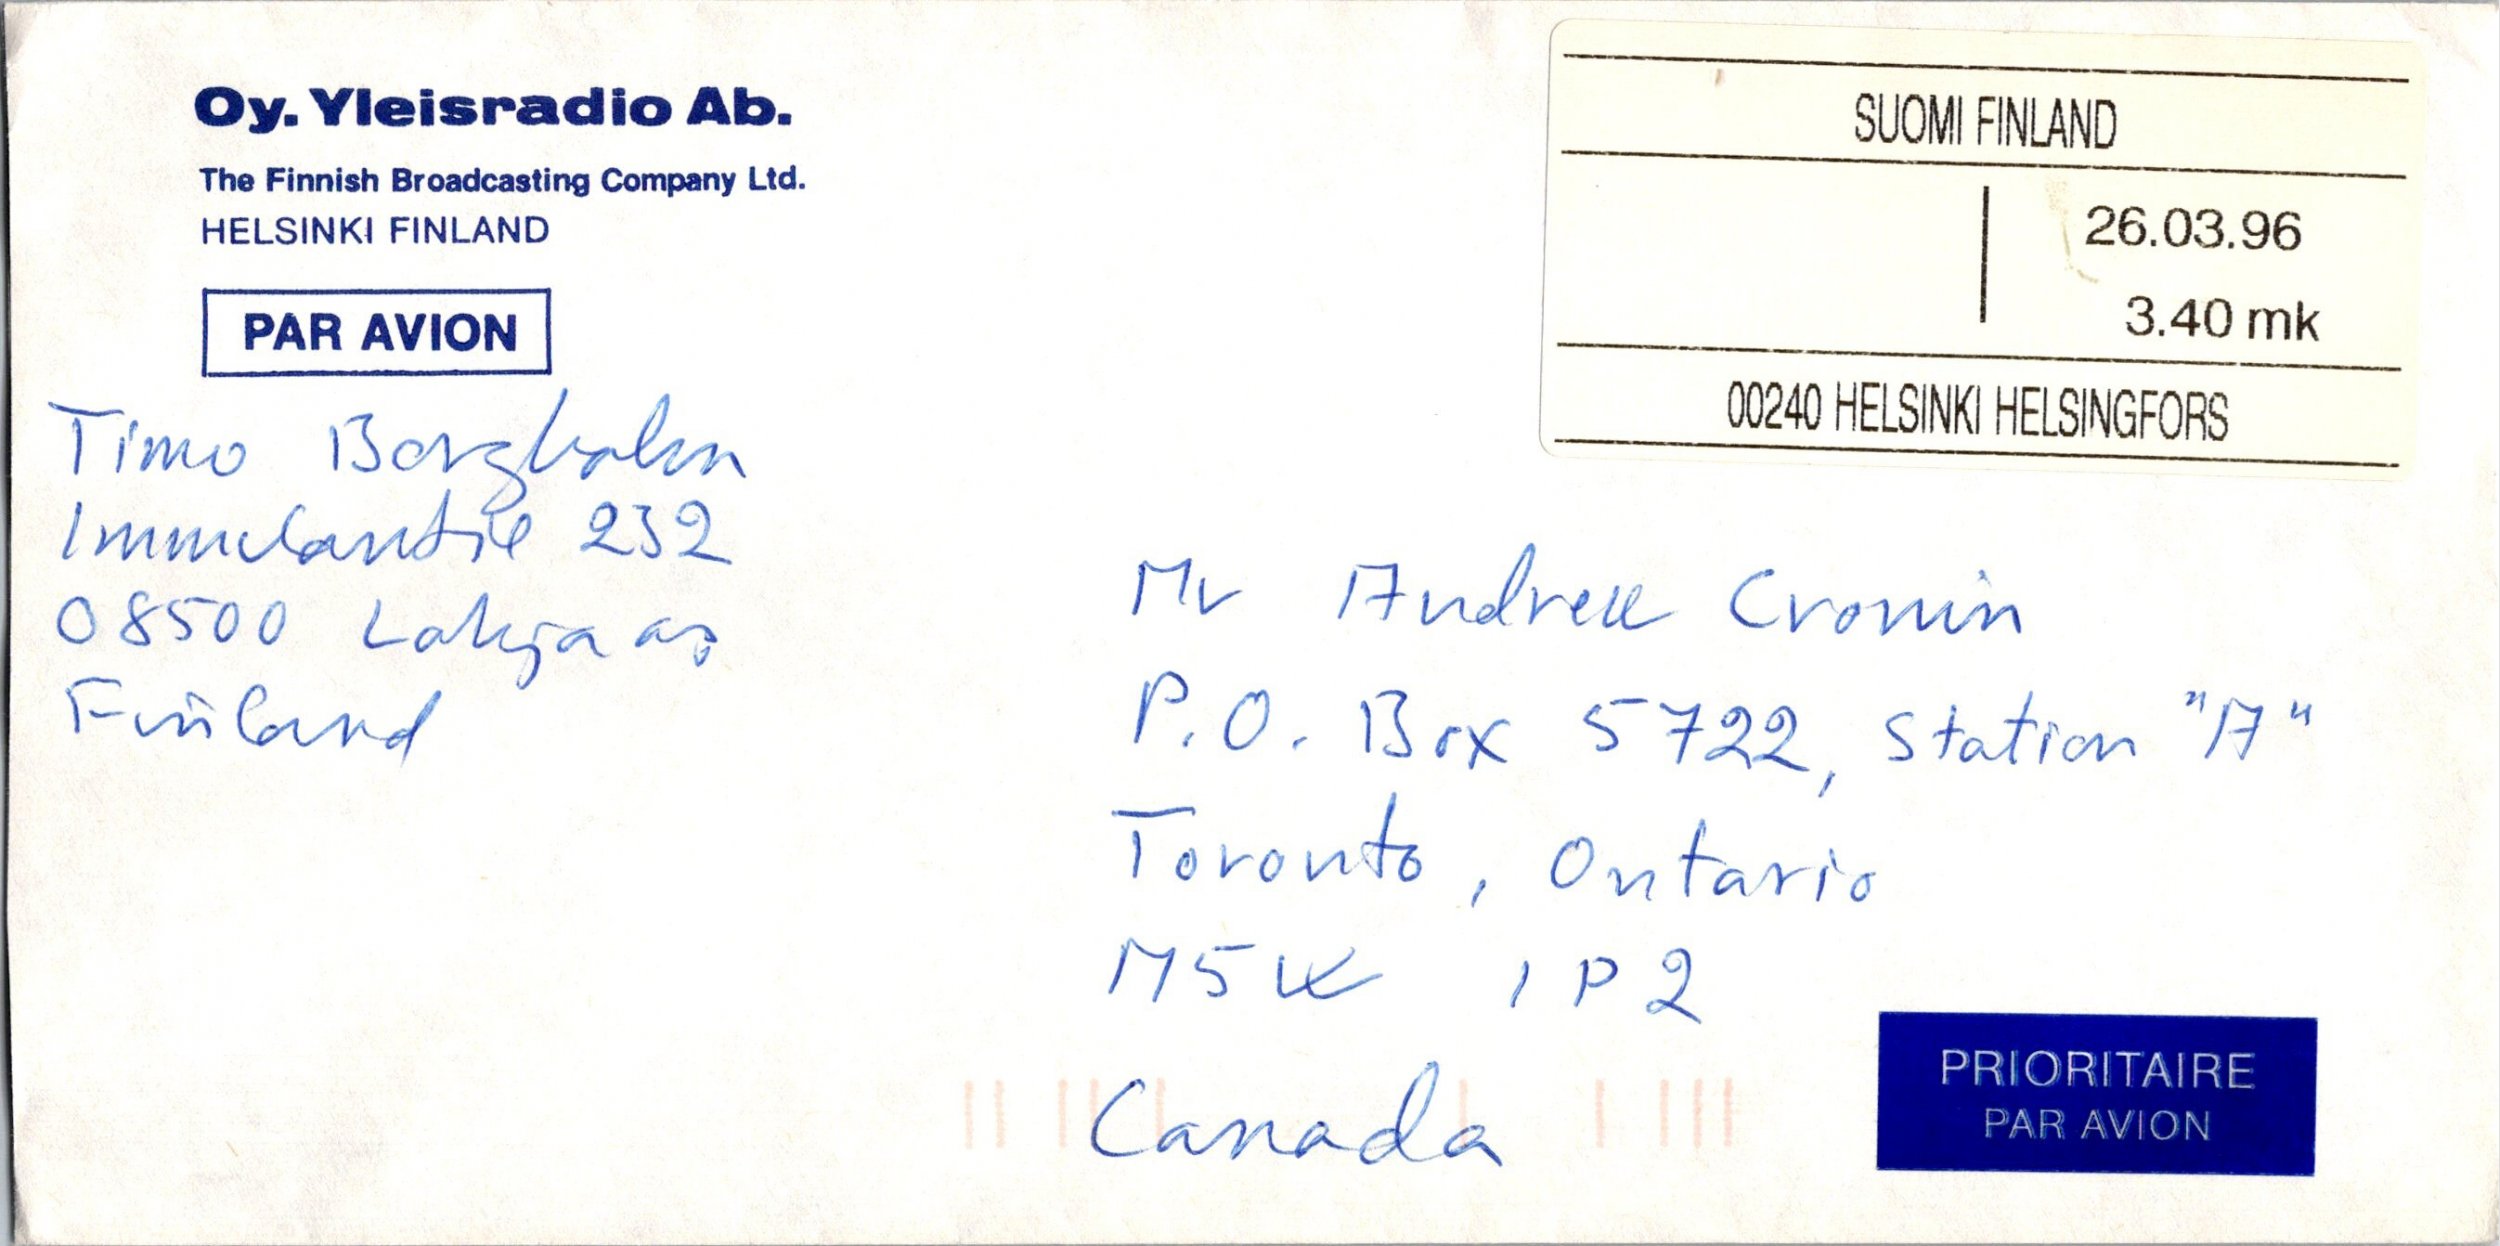 Oy. Yleisradio Ab.
The Finnish Broadcasting Company Ltd.
HELSINKI FINLAND
PAR AVION
SUOMI FINLAND
26.03.96
3.40 mk
00240 HELSINKI HELSINGFORS
Timo Borgholm
Immulantie 232
08500 Lohja as
Finland
Mr Andrew Cronin
P.O. Box 5722, Station "A"
Toronto, Ontario
M5W 1P2
Canada
PRIORITAIRE
PAR AVION